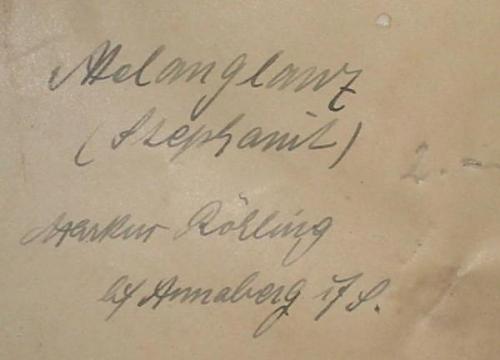 Melanglanz
(Stephanit)
2.-
Markus Röhling
b/ Annaberg i/S.